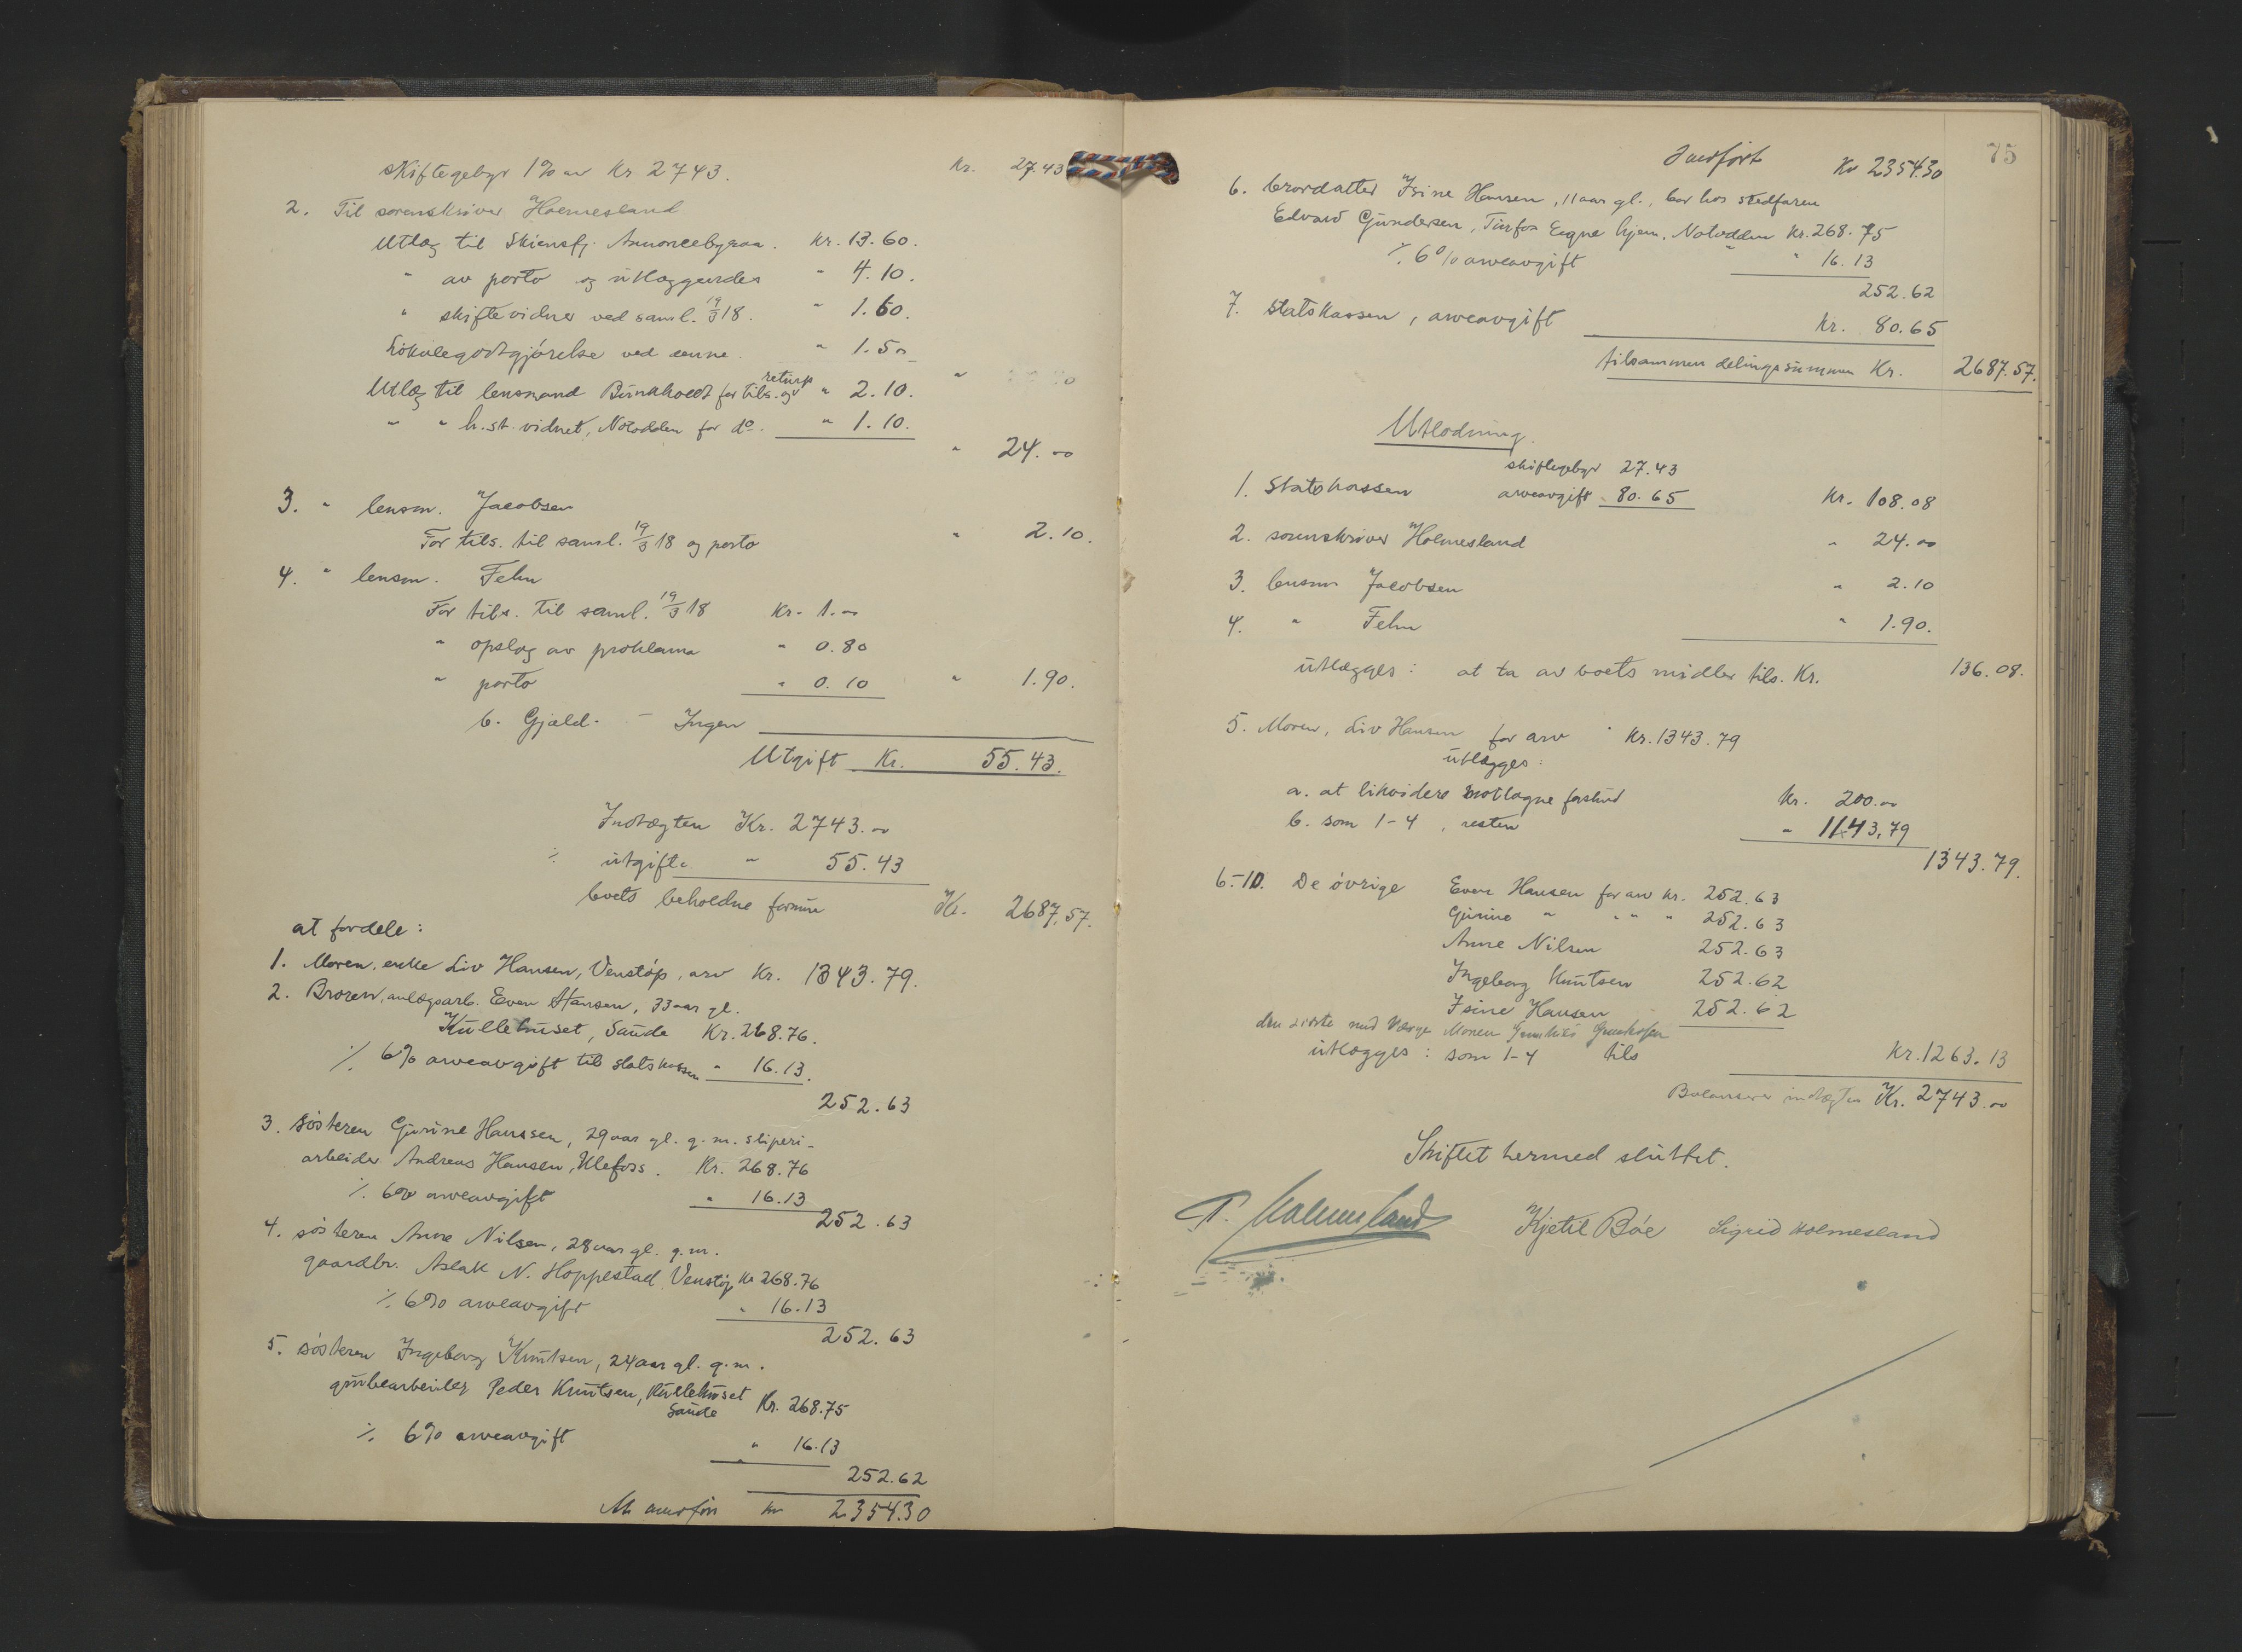 Skiftegebyr 1% av Kr 2743. Kr. 27.43
2. Til sorenskriver Holmesland
Utlæg til Skiensfj. Annoncebyraa. Kr. 13.60.
" av porto og utlæggendes " 4.10.
" skiftevidner ved saml. 19/3 18. " 1.60.
Lokalegodtgjørelse ved denne. " 1.50
Utlæg til lensmand Bunkholdt for tils. og returp " 2.10.
" " h.st. vidnet, Notodden for do. " 1.10.
" 24.00
3. " lensm. Jacobsen
For tils. til saml. 19/3 18 og porto " 2.10.
4. " lensm. Fehn
For tils. til saml. 19/3 18 Kr. 1.00
" opslag av proklama " 0.80
" porto " 0.10 " 1.90.
b. Gjæld. - Ingen
Utgift Kr. 55.43.
Indtægten Kr. 2743.00
÷ utgift. " 55.43
boets beholdne formue Kr. 2687,57.
at fordele:
1. Moren, enke Liv Hansen, Venstøp, arv Kr. 1343.79.
2. Broren, anlægsarb. Even Hansen, 33 aar gl.
Kullehuset, Saude Kr. 268.76.
÷ 6% arveavgift til statskassen " 16.13.
252.63
3. Søsteren Gurine Hanssen, 29 aar gl. g. m. sliperi-
arbeider Andreas Hansen, Ulefoss. Kr. 268.76
÷ 6% arveavgift " 16.13
252.63
4. søsteren Anne Nilsen, 28 aar gl. g. m.
gaardbr. Aslak N. Hoppestad Venstøp Kr 268.76
÷ 6% arveavgift " 16.13
252.63
5. søsteren Ingeborg Knutsen, 24 aar gl. g. m.
grubearbeider Peder Knutsen, Kullehuset
Saude Kr. 268.75
÷ 6% arveavgift " 16.13
252.62
At overføre kr 2354.30
75
Overført Kr 2354.30
6. brordatter Isine Hansen, 11 aar gl., bor hos stedfaren
Edvard Gundersen, Tinfos Eegne hjem, Notodden Kr. 268.75
÷ 6% arveavgift " 16.13
252.62
7. Statskassen, arveavgift Kr. 80.65
tilsammen delingssummen Kr. 2687.57.
Utlodning.
skiftegebyr 27.43
1. Statskassen arveavgift 80.65 Kr. 108.08
2. sorenskriver Holmesland " 24.00
3. lensm Jacobsen " 2.10
4. " Fehn " 1.90.
utlægges: at ta av boets midler tils. Kr. 136.08.
5. Moren, Liv Hansen for arv Kr. 1343.79
utlægges:
a. at likvidere motlagne forskud Kr. 200.00
b. som 1-4, resten " 1143,79
1343.79.
6.-10. De øvrige Even Hansen for arv kr. 252.63
Gurine " " " " 252.63
Anne Nilsen 252.63
Ingeborg Knutsen 252.62
Isine Hansen 252.62
den sidste med Værge Moren
utlægges: som 1-4 tils Kr. 1263.13
Balanserer indtægten Kr. 2743.00
Skiftet hermed sluttet.
P. Holmesland Kjetil Bøe Sigrid Holmesland